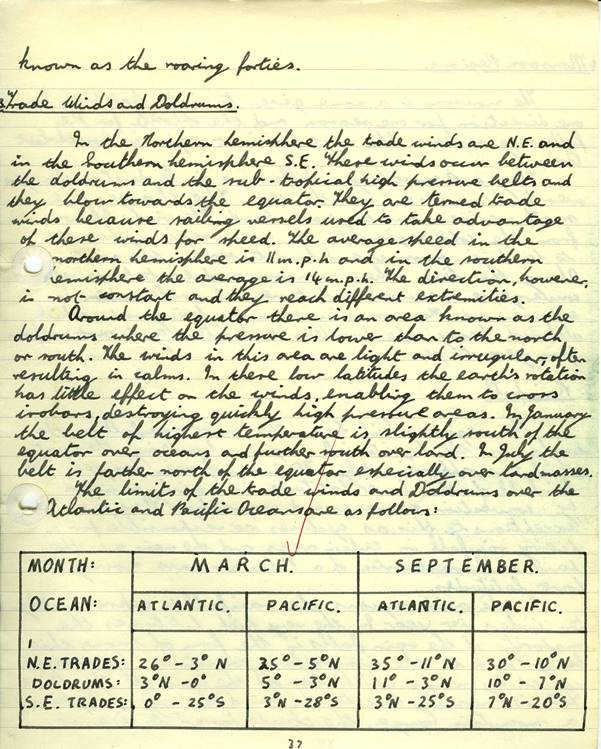 known as the roaring forties.
Trade Winds and Doldrums.
In the Northern hemisphere the trade winds are N.E. and
in the Southern hemisphere S.E. These winds occur between
the doldrums and the sub-tropical high pressure belts and
they blow towards the equator. They are termed trade
winds because sailing vessels used to take advantage
of these winds for speed. The average speed in the
northern hemisphere is 11 m.p.h and in the southern
hemisphere the average is 14 m.p.h. The direction, however,
is not constant and they reach different extremities.
Around the equator there is an area known as the
doldrums where the pressure is lower than to the north
or south. The winds in this area are light and irregular, often
resulting in calms. In these low latitudes the earth's rotation
has little effect on the winds, enabling them to cross
isobars, destroying quickly high pressure areas. In January
the belt of highest temperature is slightly south of the
equator over oceans and further south over land. In July the
belt is farther north of the equator especially over landmasses.
The limits of the trade winds and Doldrums over the
Atlantic and Pacific Oceans are as follows:
MONTH: MARCH. SEPTEMBER.
OCEAN: ATLANTIC. PACIFIC. ATLANTIC. PACIFIC.
N.E. TRADES: 26° - 3° N 25° - 5°N 35° - 11°N 30° - 10°N
DOLDRUMS: 3°N - 0° 5° - 3°N 11° - 3°N 10° - 7°N
S.E. TRADES: 0° - 25°S 3°N - 28°S 3°N - 25°S 7°N - 20°S